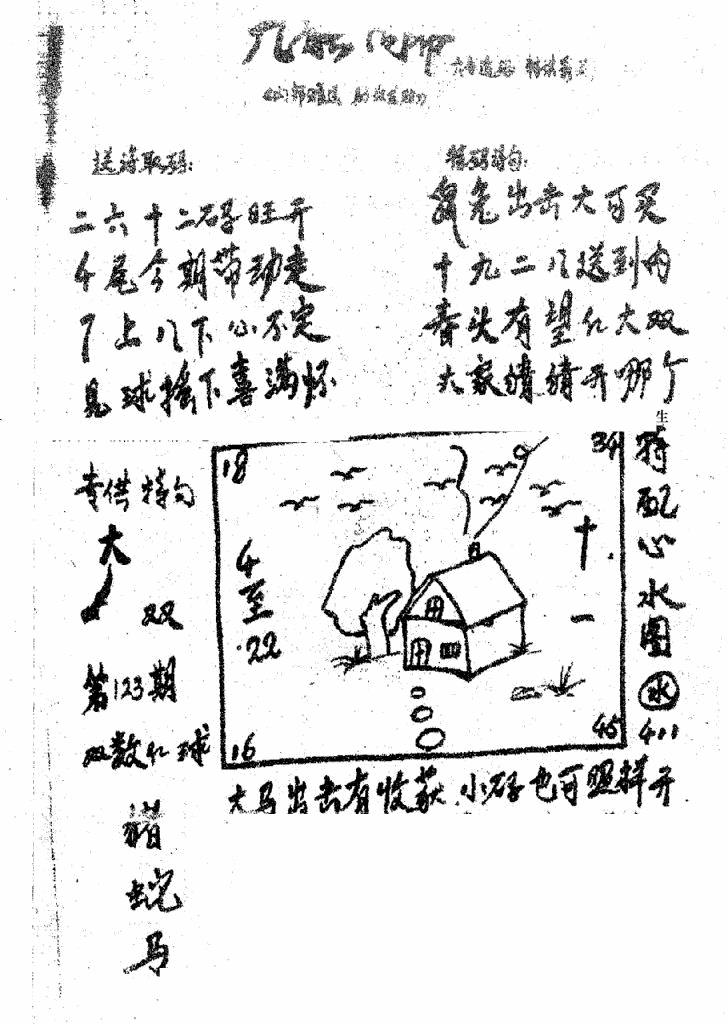 送诗取码:
二六十二码旺开
4尾今期带动走
丁上八下心不定
见球摇下喜满怀
特码诗句:
兔出击大可买
十九二八送到内
春头有望红大双
大家猜猜开哪个
专供特句
大
双
第123期
双数红球
猪
蛇
马
18
34
4至22
十
一
16
45
生
特配心水图
水
411
大马出击有收获 小码也可照样开